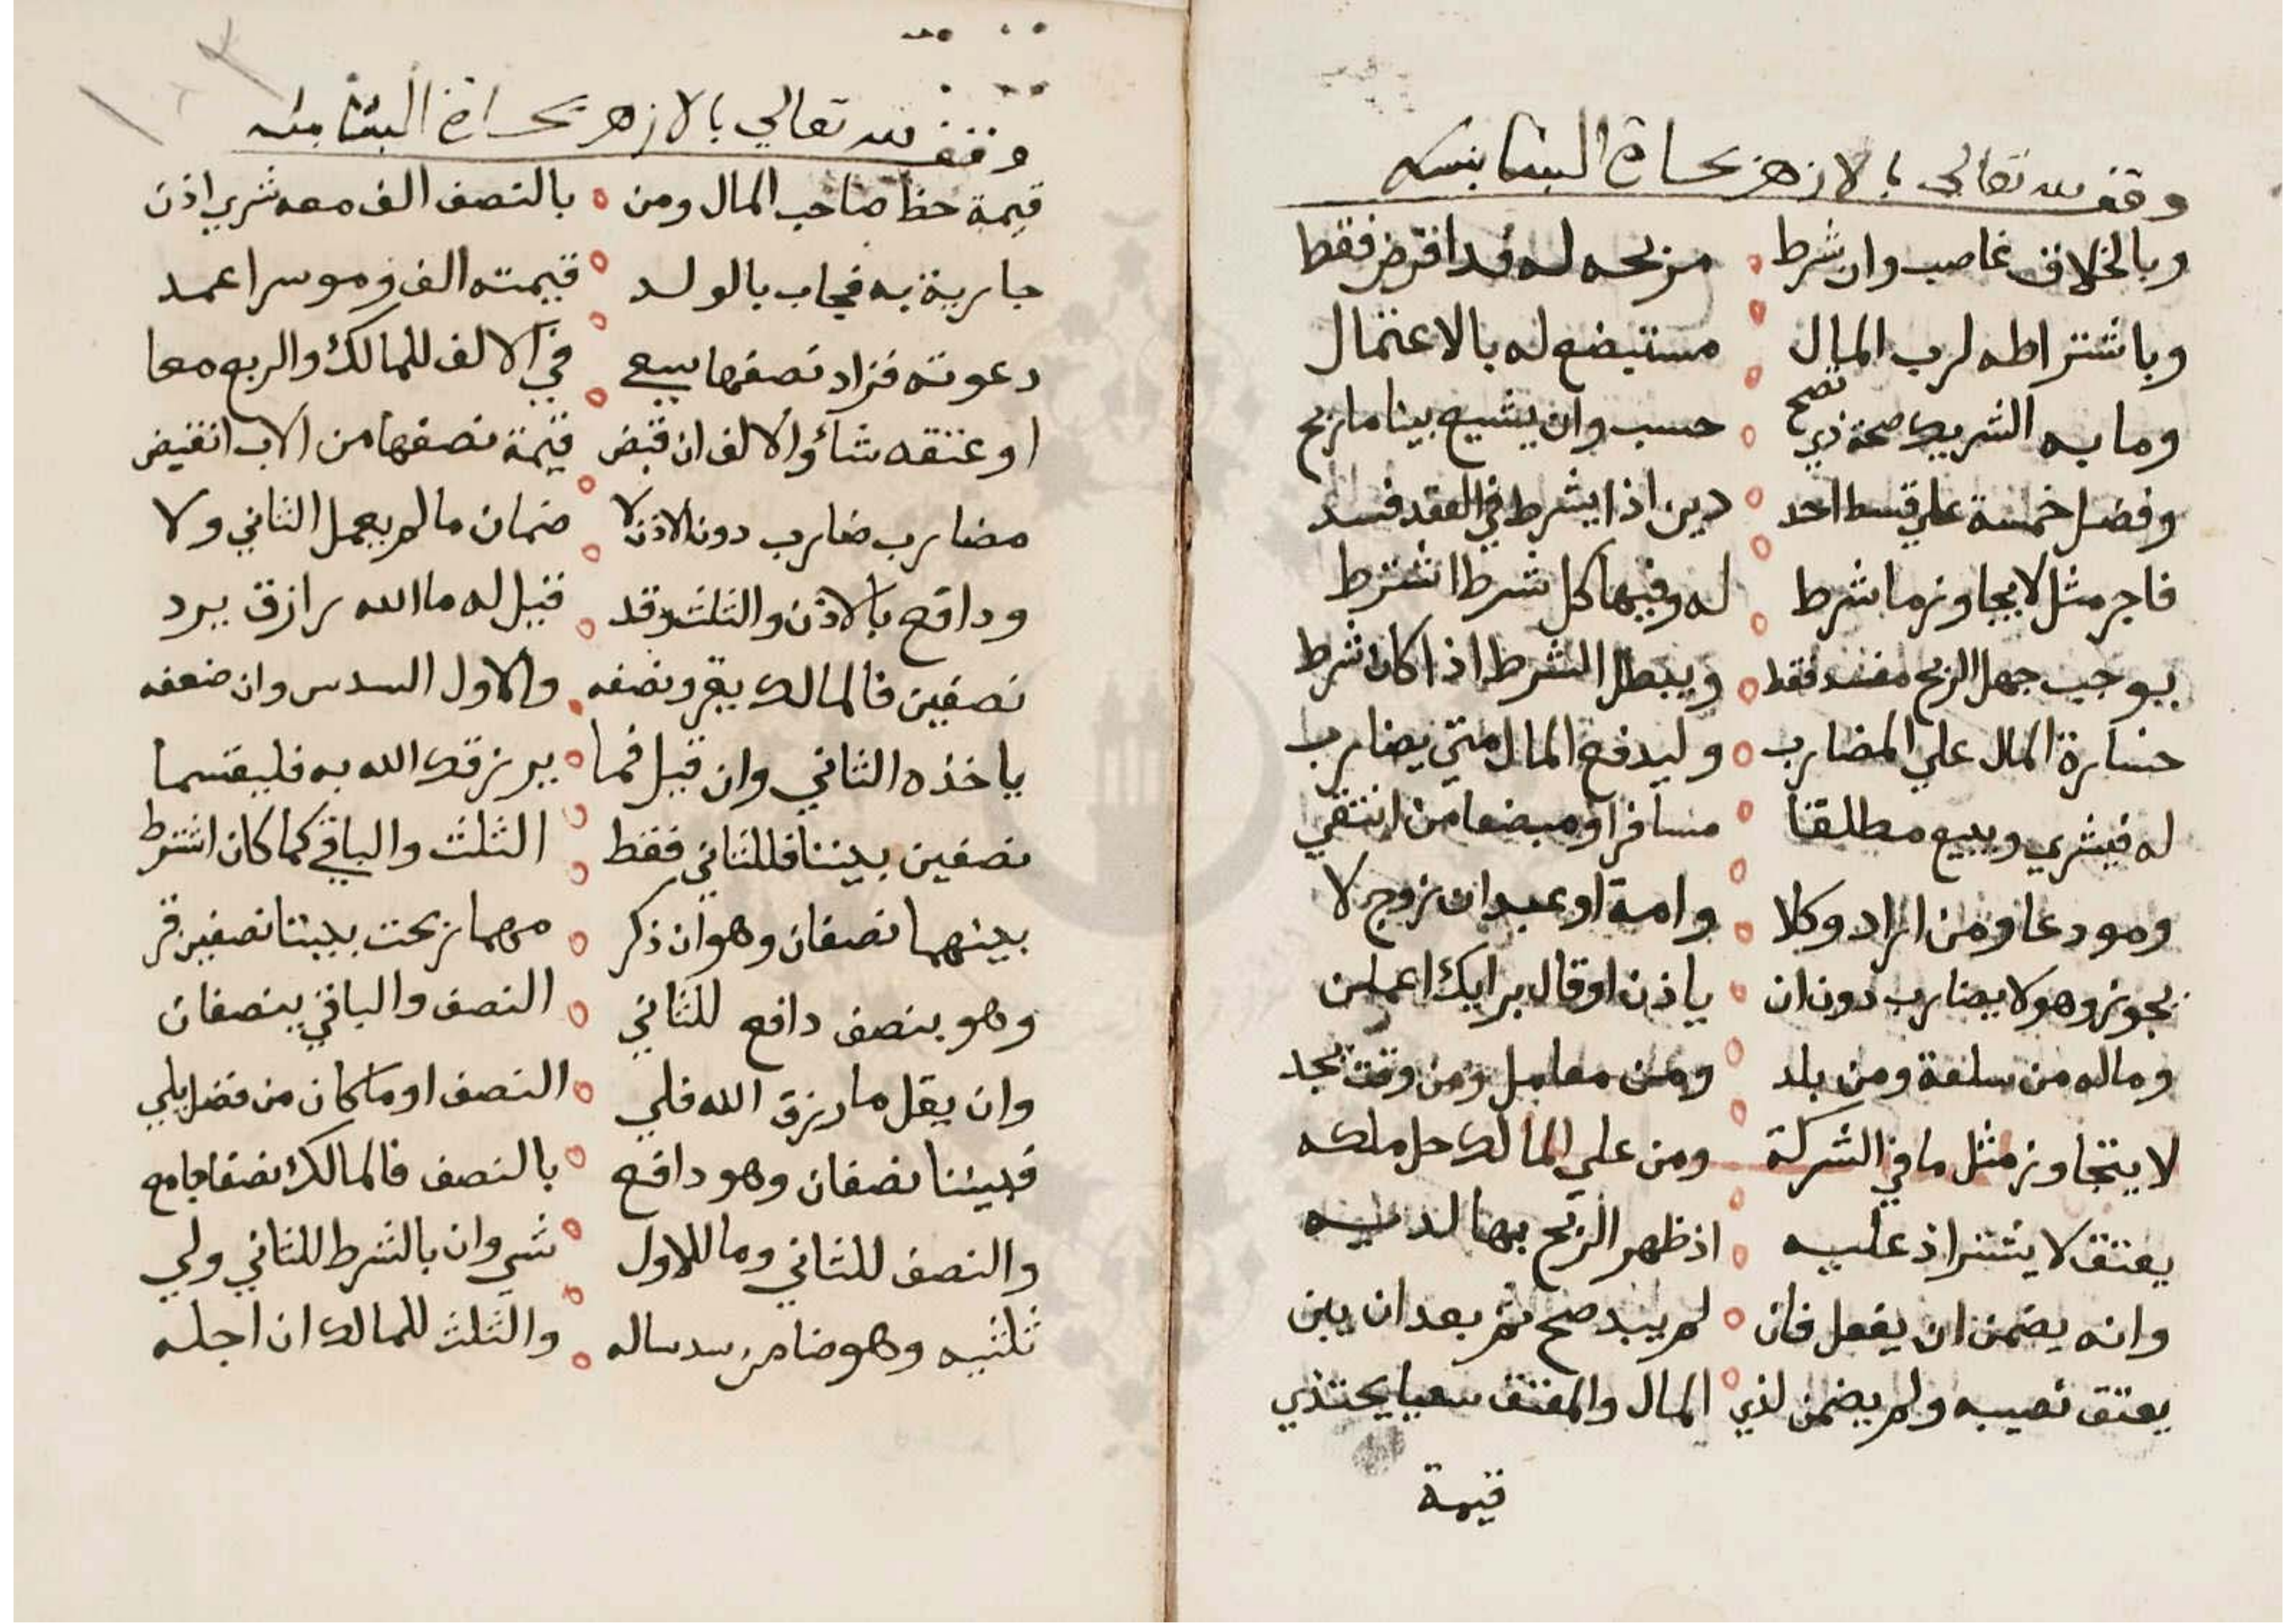 وقف لله تعالي بالازهر بحارة البشابشه
وبالخلاف غاصب وان شرط من ربحه له فقد اقترض فقط
وباشتراطه لرب المال مستبضع له بالاعتمال
وما به الشريك صحة ذي تصح حسب وان يشيع بينا ما ربح
وفضل خمسة علي قسط احد دين اذا يشرط في العقد فسد
فاجر مثل لا يجاوز ما شرط له وفيها كل شرط اشترط
يوجب جهل الربح مفسد فقط ويبطل الشرط اذا كان شرط
خسارة المال علي المضارب وليدفع المال متي يضارب
له فيشري ويبيع مطلقا مسافرا ومبضعا من انتقي
ومودعا ومن اراد وكلا وامة او عبد ان زوج لا
يجوز وهو لا يضارب دون ان ياذن او قال برايك اعملن
وماله من سلعة ومن بلد ومن معامل ومن وقت يجد
لا يتجاوز مثل ما في الشركة ومن علي المالك حل ملكه
يعتق لا يشترا ذ عليه اذ ظهر الربح بها لديه
وانه يضمن ان يفعل فان لم يبد صح ثم بعد ان يبن
يعتق نصيبه ولم يضمن لذي المال والمعتق سعيا يحتذي
قيمة
وقف لله تعالي بالازهر بحارة البشابشه
قيمة حظ صاحب المال ومن بالنصف الف معه شري اذن
جارية به فجاب بالولد قيمته الف وموسرا عمد
دعوته فزاد نصفها يسعي في الالف للمالك والربع معا
او عتقه شاؤا الالف ان قبض قيمة نصفها من الاب انقبض
مضارب ضارب دون الاذن لا ضمان ما لم يعمل الثاني ولا
ودافع بالاذن والثلث وقد قيل له ما الله رازق يرد
نصفين فالمالك يقرو نصفه والاول السدس وان ضعفه
ياخذه الثاني وان قيل فما يرزقك الله به فليقسما
نصفين بيننا فللثاني فقط الثلث والباقي كما كان اشترط
بينهما نصفان وهو ان ذكر مهما ربحت بيننا نصفين قر
وهو بنصف دافع للثاني النصف والباقي ينصفان
وان يقل ما رزق الله فلي النصف او ما كان من فضل يلي
فبيننا نصفان وهو دافع بالنصف فالمالك نصفا جامع
والنصف للثاني وما للاول شي وان بالشرط للثاني ولي
ثلثيه وهو ضامن سدسا له والثلث للمالك ان اجله